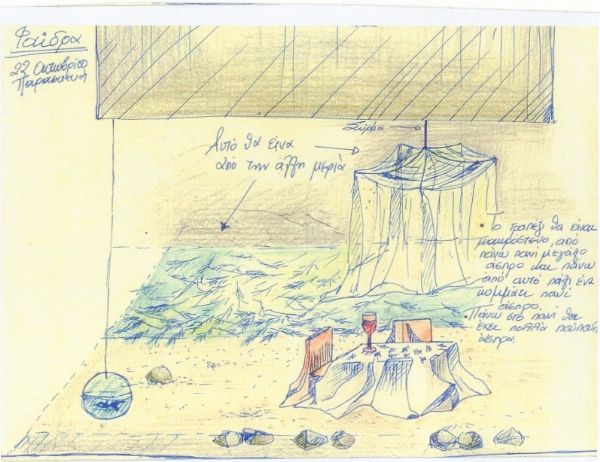 Φαίδρα
22 Οκτωβρίου
Παρασκευή
Σύρμα
Αυτό θα είναι
από την άλλη μεριά
• Ο τραπέζι θα είναι
μακρόστενο, από
πάνω πανί μεγάλο
άσπρο και πάνω
από αυτό πάλι ένα
κομμάτι πανί
άσπρο.
Πάνω στο πανί θα
έχει πολλά
άσπρα.